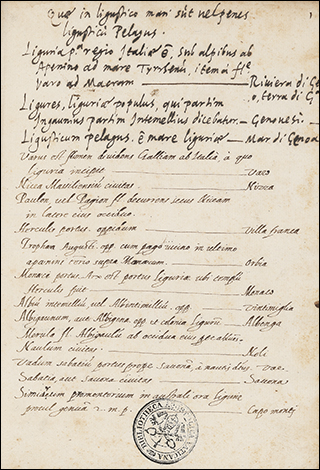 Quæ in ligustico mari sūt vel penes
ligusticū Pelagus.
Liguria regio Italiæ ē, sub alpibus ab
Apenino ad mare Tyrrhenū, item à
Varo ad Macram — Riviera di G
o, terra di G
Ligures, liguriæ populus, qui partim
Ingaunius partim Intemelius dicebatur. — Genovesi.
Ligusticum pelagus, ē mare liguriæ — Mar di Genoa
Varus est flumen dividens Galliam ab Italia, à quo
liguria incipit — Varo
Nicea Massiliensis civitas — Nizza
Paulon, vel Pagion fl. decurrens
in latere eius occiduo.
Herculis portus, oppidum — Villa franca
Trophæa Augusti, opp. cum pago vicino in ultimo
apenini supra Monacum. — Orbia
Monæcæ portus Arx est portus liguriæ ubi templū
Herculis fuit — Monaco
Albiū intemeliū vel Albintimiliū, opp. — Vintimiglia
Albigaunum, aut Albigena opp. et colonia Ligurū. — Albenga
Merula fl. Albigauli ab occidua
Naulum civitas. — Noli
Vadum sabatiū portus prope savonā, à nautis dictus. Vae.
Sabatia, aut Savona civitas — Savona
promontorium in australi ora liguriæ
procul genua 2. m. p. — Capo monti
BIBLIOTHECA APOSTOLICA VATICANA